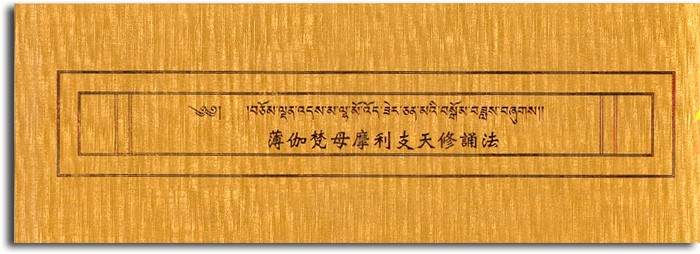 ༄༅། །བཅོམ་ལྡན་འདས་མ་ལྷ་མོ་འོད་ཟེར་ཅན་མའི་བསྒོམ་བཟླས་བཞུགས།།
薄伽梵母摩利支天修誦法